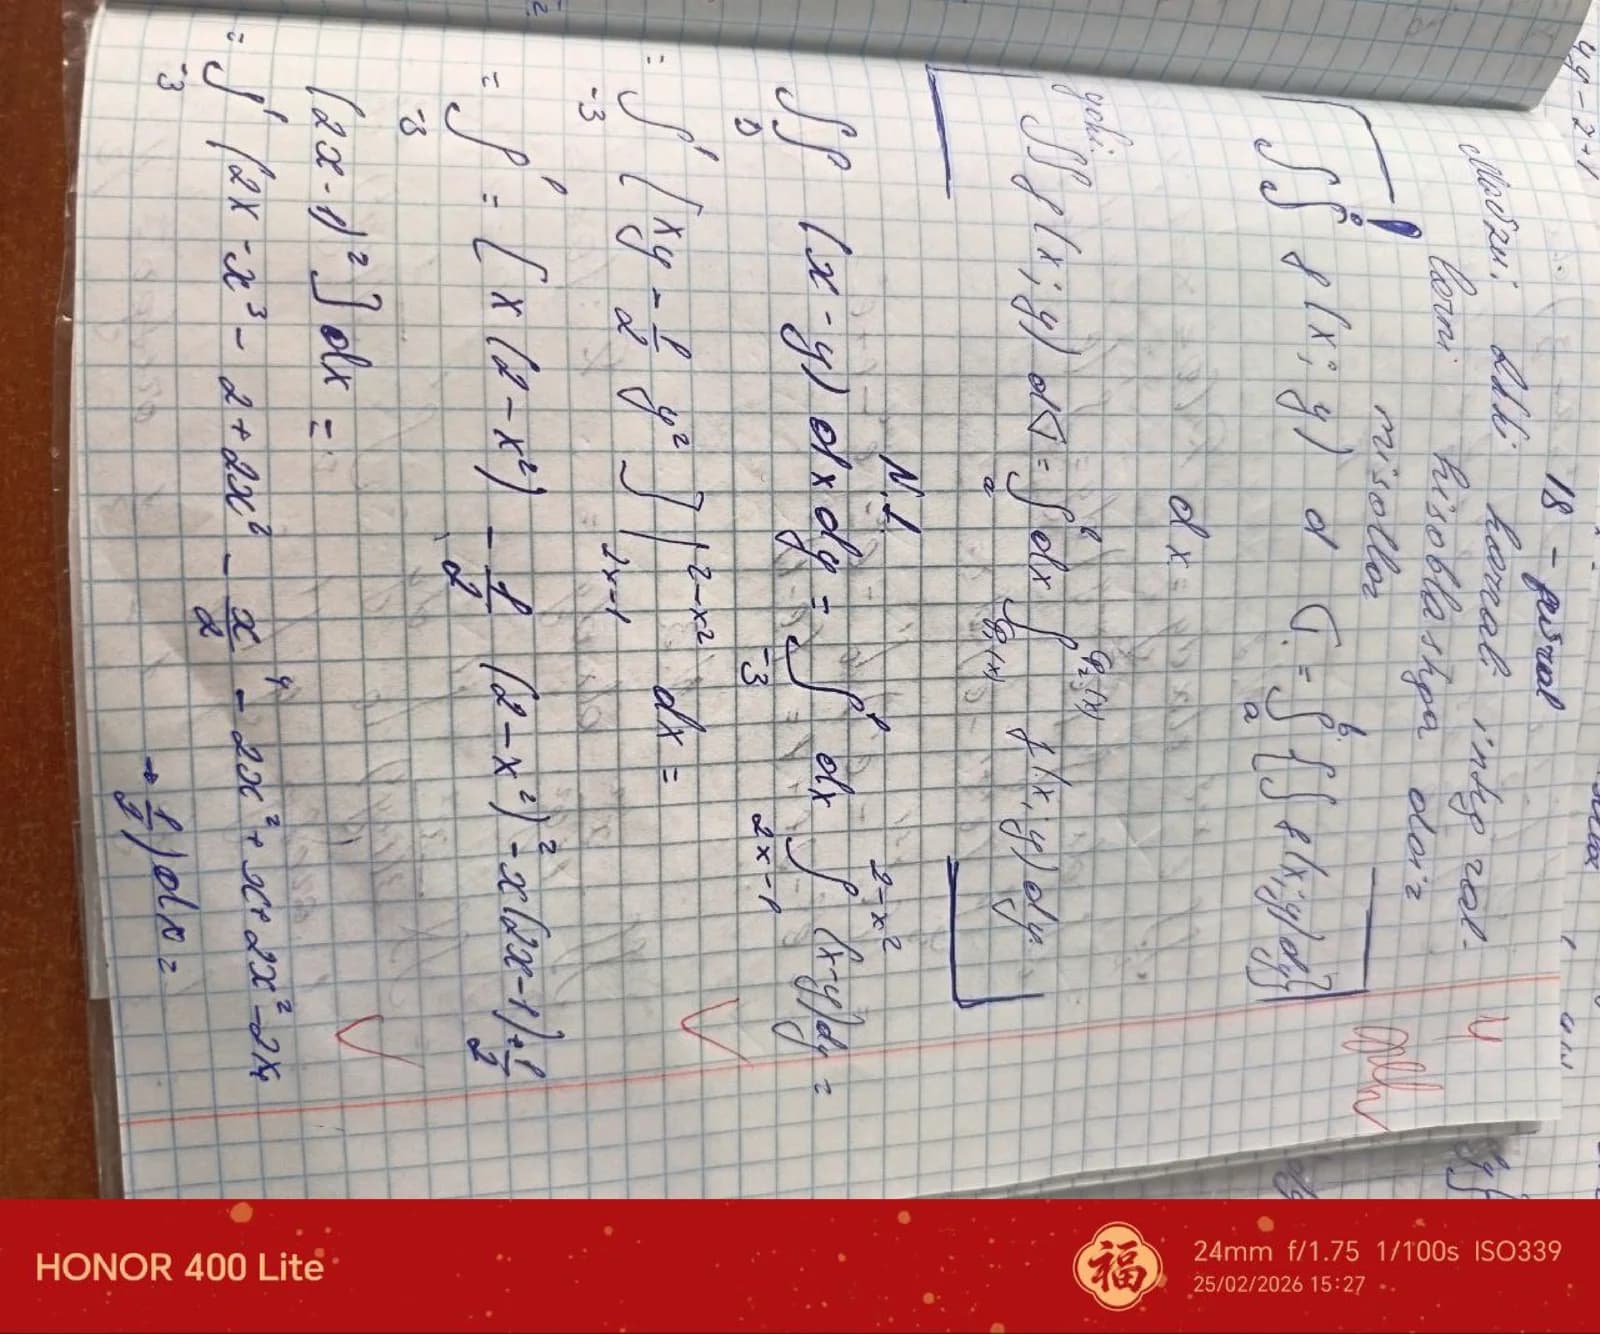 18 -
Mavzu: ikki karrali integral-
larni hisoblashga doir
misollar
∬ f(x; y) d G = ∫ₐᵇ {∫ f(x; y) dy}
dx =
yoki.
∬ f(x; y) dG = ∫ₐᵇ dx ∫_{φ₁(x)}^{φ₂(x)} f(x; y) dy.
N.1.
∬_D (x - y) dx dy = ∫₋₃¹ dx ∫_{2x-1}^{2-x²} (x-y) dy =
= ∫₋₃¹ [xy - 1/2 y²] |_{2x-1}^{2-x²} dx =
= ∫₋₃¹ = [x (2 - x²) - 1/2 (2 - x²)² - x(2x-1) + 1/2
(2x - 1)²] dx =
= ∫₋₃¹ (2x - x³ - 2 + 2x² - x⁴/2 - 2x² + x + 2x² - 2x
+ 1/2) dx =
HONOR 400 Lite
福
24mm f/1.75 1/100s ISO339
25/02/2026 15:27